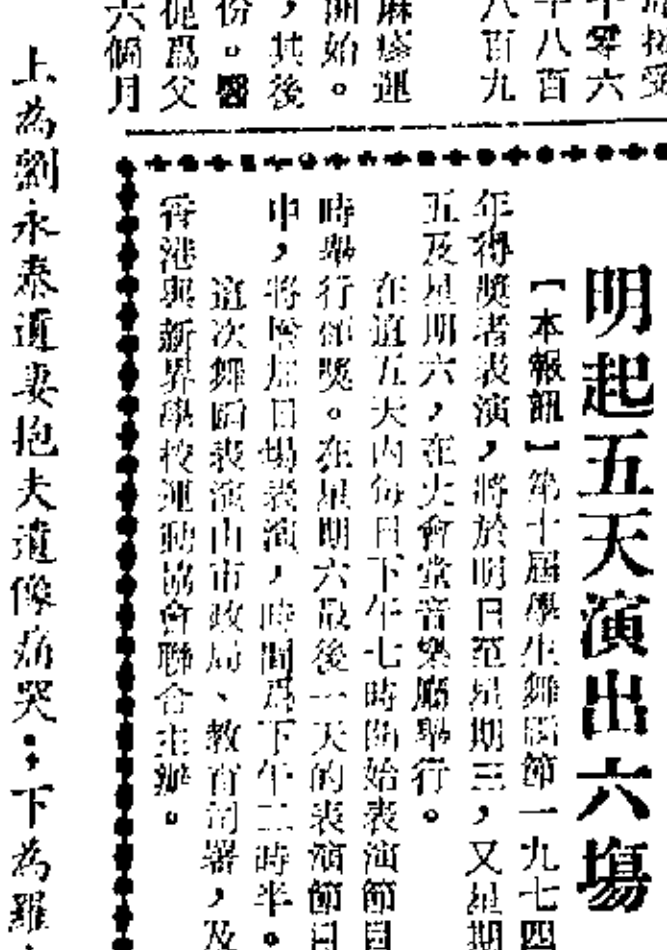 接受
零六
千八百
八百九
麻痹運
開始。
，其後
份。醫
爲父
六個月
明起五天演出六塲
【本報訊】第十屆學生舞蹈節一九七四
年得獎者表演，將於明日至星期三，又星期
五及星期六，在大會堂音樂廳舉行。
在這五天內每日下午七時開始表演節目
時舉行頒獎。在星期六最後一天的表演節目
中，將增加日塲表演，時間爲下午二時半。
這次舞蹈表演由市政局、教育司署，及
香港與新界學校運動協會聯合主辦。
上為劉永泰遺妻抱夫遺像痛哭；下為羅